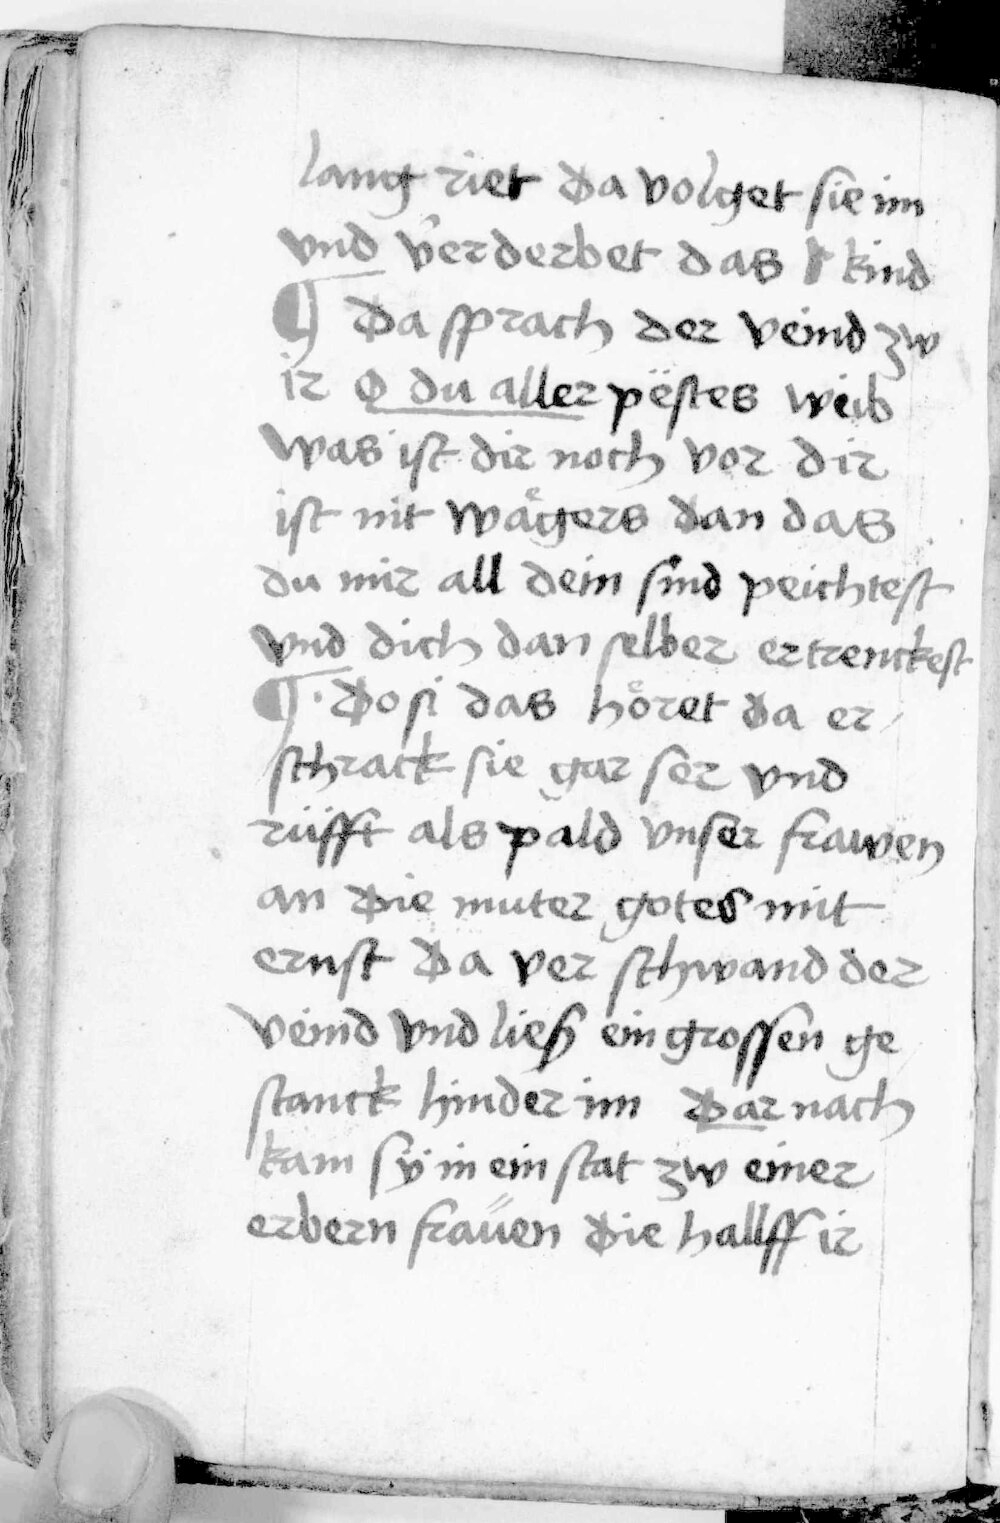 lang riet Da volget sie im
vnd verderbet das kind
¶ Da sprach der veind zw
ir O du aller pëstes weib
was ist dir noch vor dir
ist nit waͤgers dan das
du mir all dein sind peichtest
vnd dich dan selber ertrenckest
¶ Do si das hoͤret da er
schrack sie gar ser vnd
rüfft als pald vnser frawen
an Die muter gotes mit
ernst Da ver schwand der
veind vnd ließ ein grossen ge
stanck hinder im Dar nach
kam sÿ in ein stat zw einer
erbern fraüen Die hallff ir